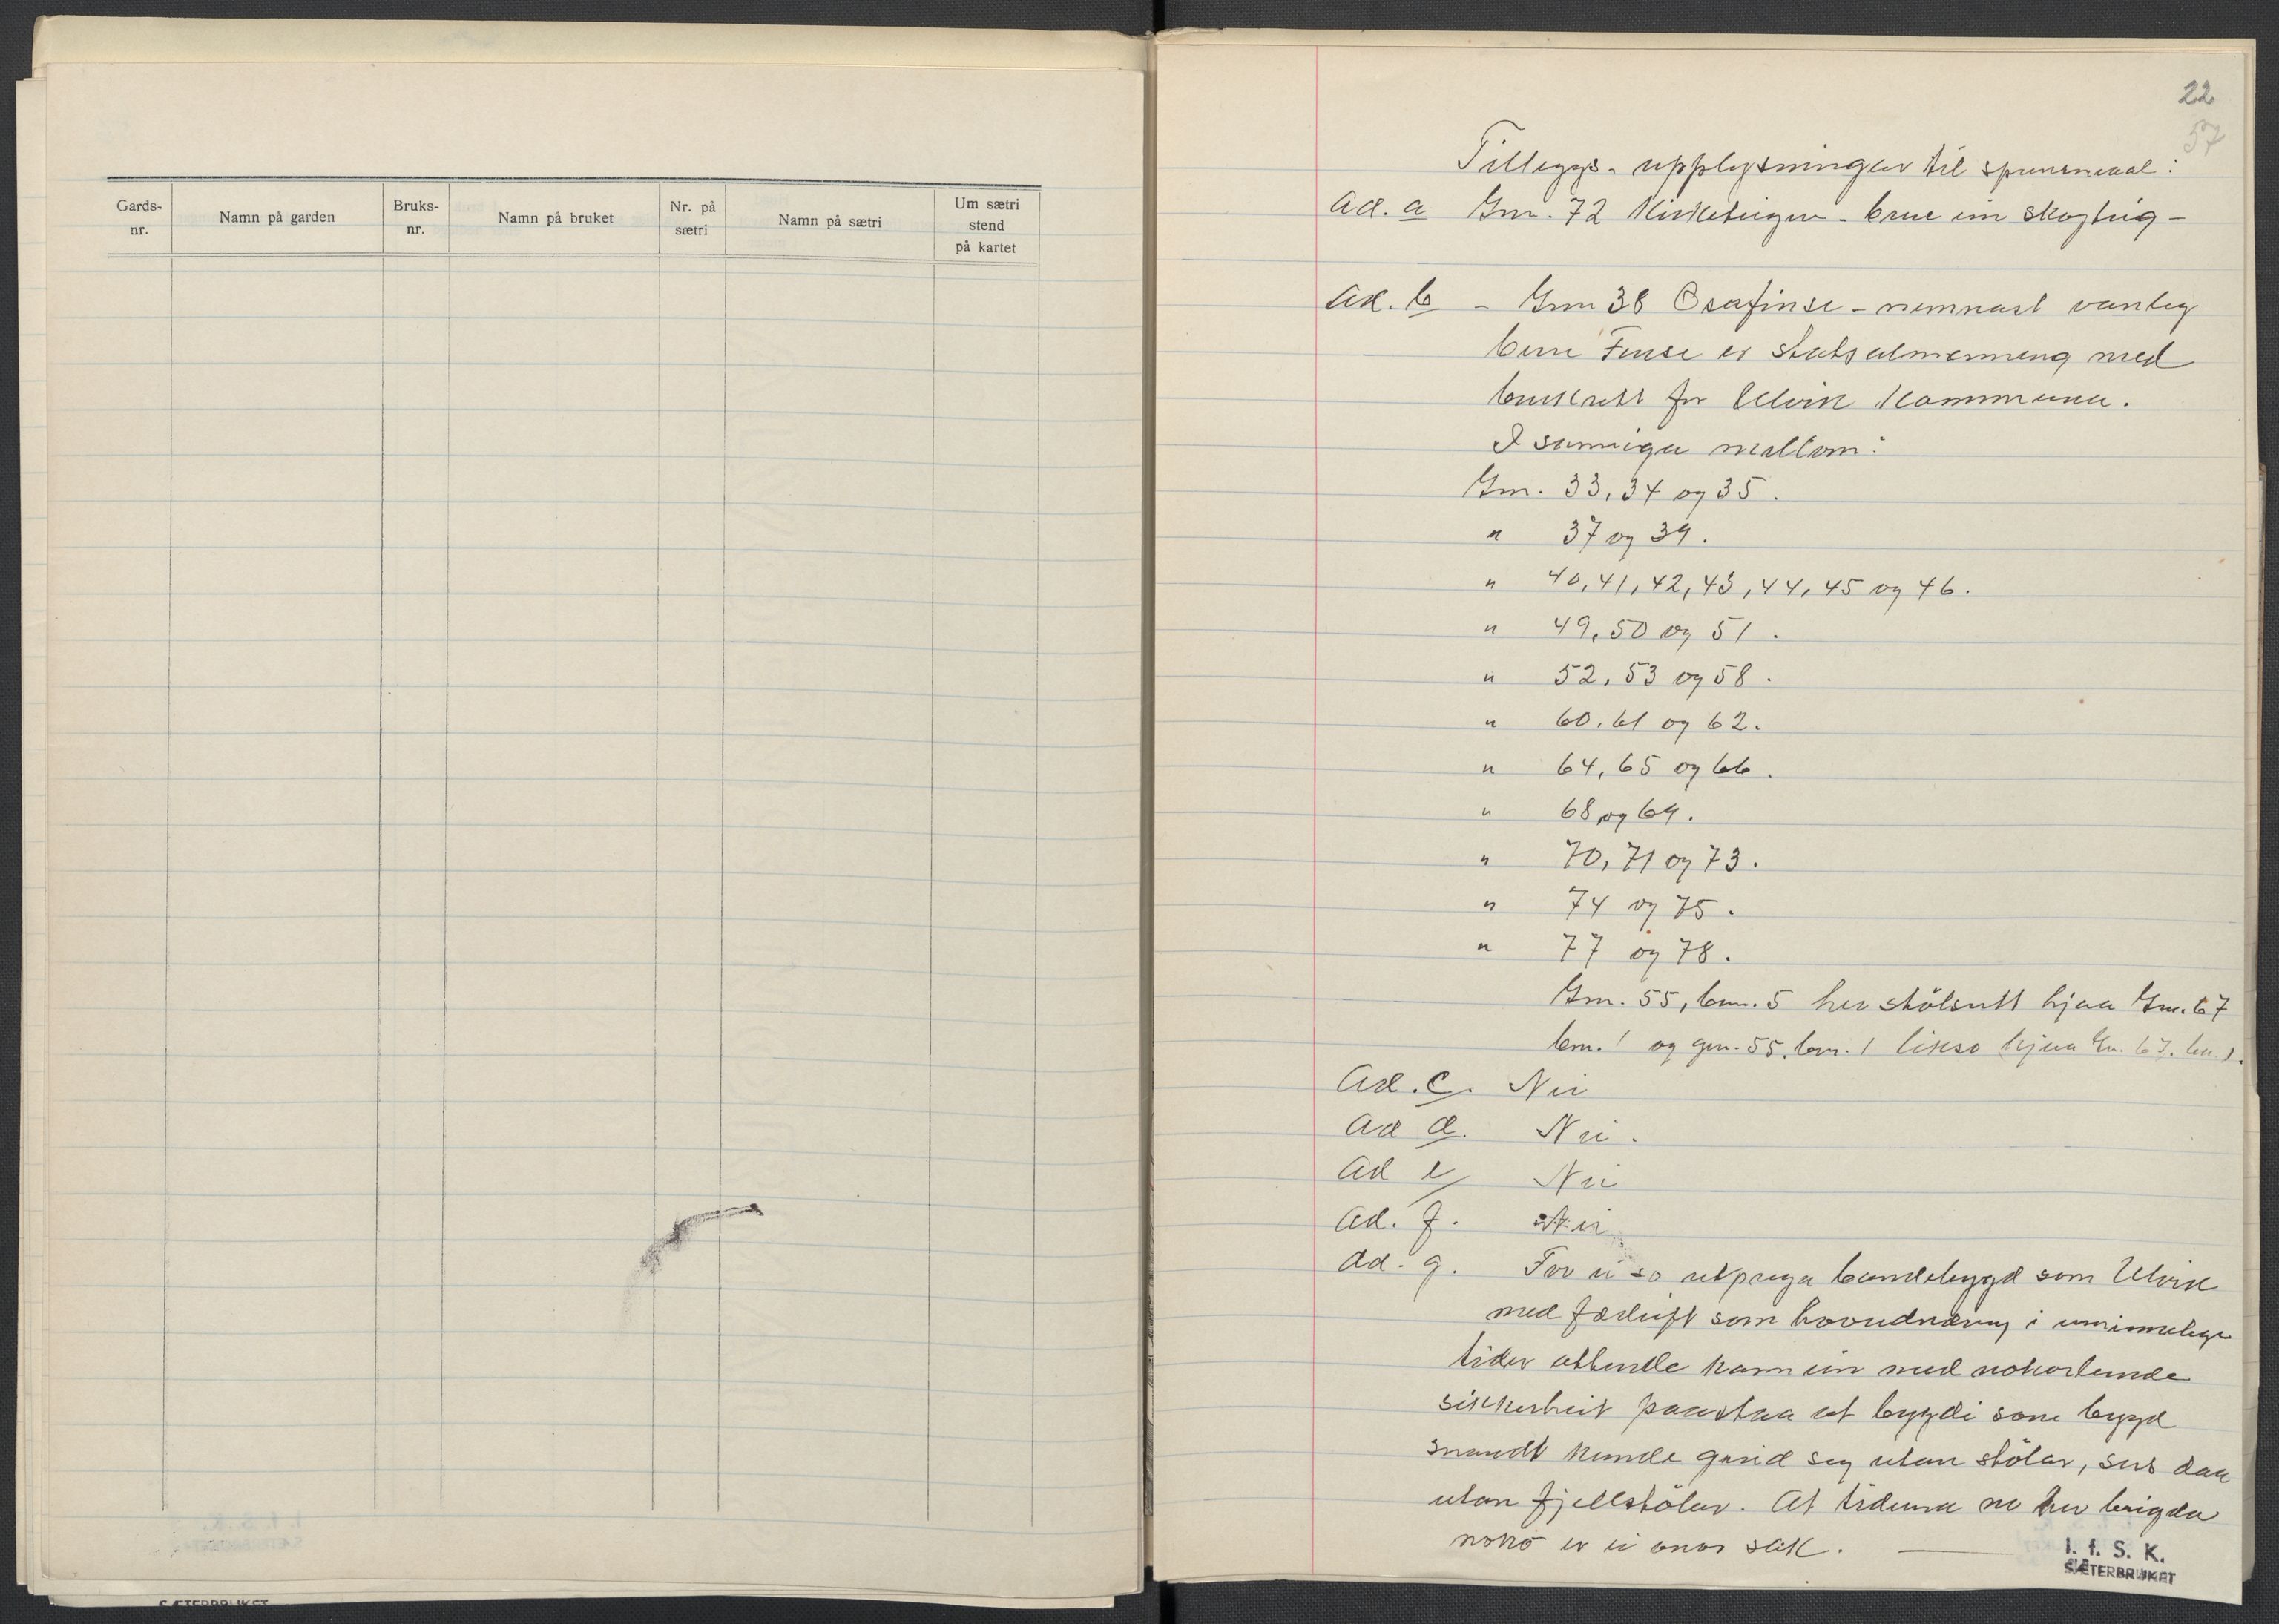 Gards-
nr.
Namn på garden
Bruks-
nr.
Namn på bruket
Nr. på
sætri
Namn på sætri
Um sætri
stend
på kartet
22
57
Tilleggs-upplysningar til spursmaal:
Ad. a Gnr. 72 Kirketeigen - bare ein skogteig -
Ad. b - Gnr 38 Osafinse - nemnast vanleg
bere Finse er statsalmenning med
bruksrett for Ulvik Kommune.
I sameige mellom:
Gnr. 33, 34 og 35.
" 37 og 39.
" 40, 41, 42, 43, 44, 45 og 46.
" 49, 50 og 51.
" 52, 53 og 58.
" 60. 61 og 62.
" 64, 65 og 66.
" 68 og 69.
" 70, 71 og 73.
" 74 og 75.
" 77 og 78.
Gnr. 55, bnr. 5 hev stölsrett hjaa Gnr. 67
bnr. 1 og gnr. 55. bnr. 1 likso hjaa Gnr. 67. bnr. 1.
Ad. c. Nei
Ad d. Nei.
Ad e/ Nei
Ad. f. Nei
Ad. g. For ei so utprega bondebygd som Ulvik
med fedrift som hovudnæring i uminnelege
tider attende kann ein med nokorlunde
sikkerheit paastaa at bygdi som bygd
snaudt kunde greid seg utan stölar, sers daa
utan fjellstölar. At tiderna no hev brigda
noko er ei onnor sak.
I. f. S. K.
SÆTERBRUKET
SÆTERBRUKET